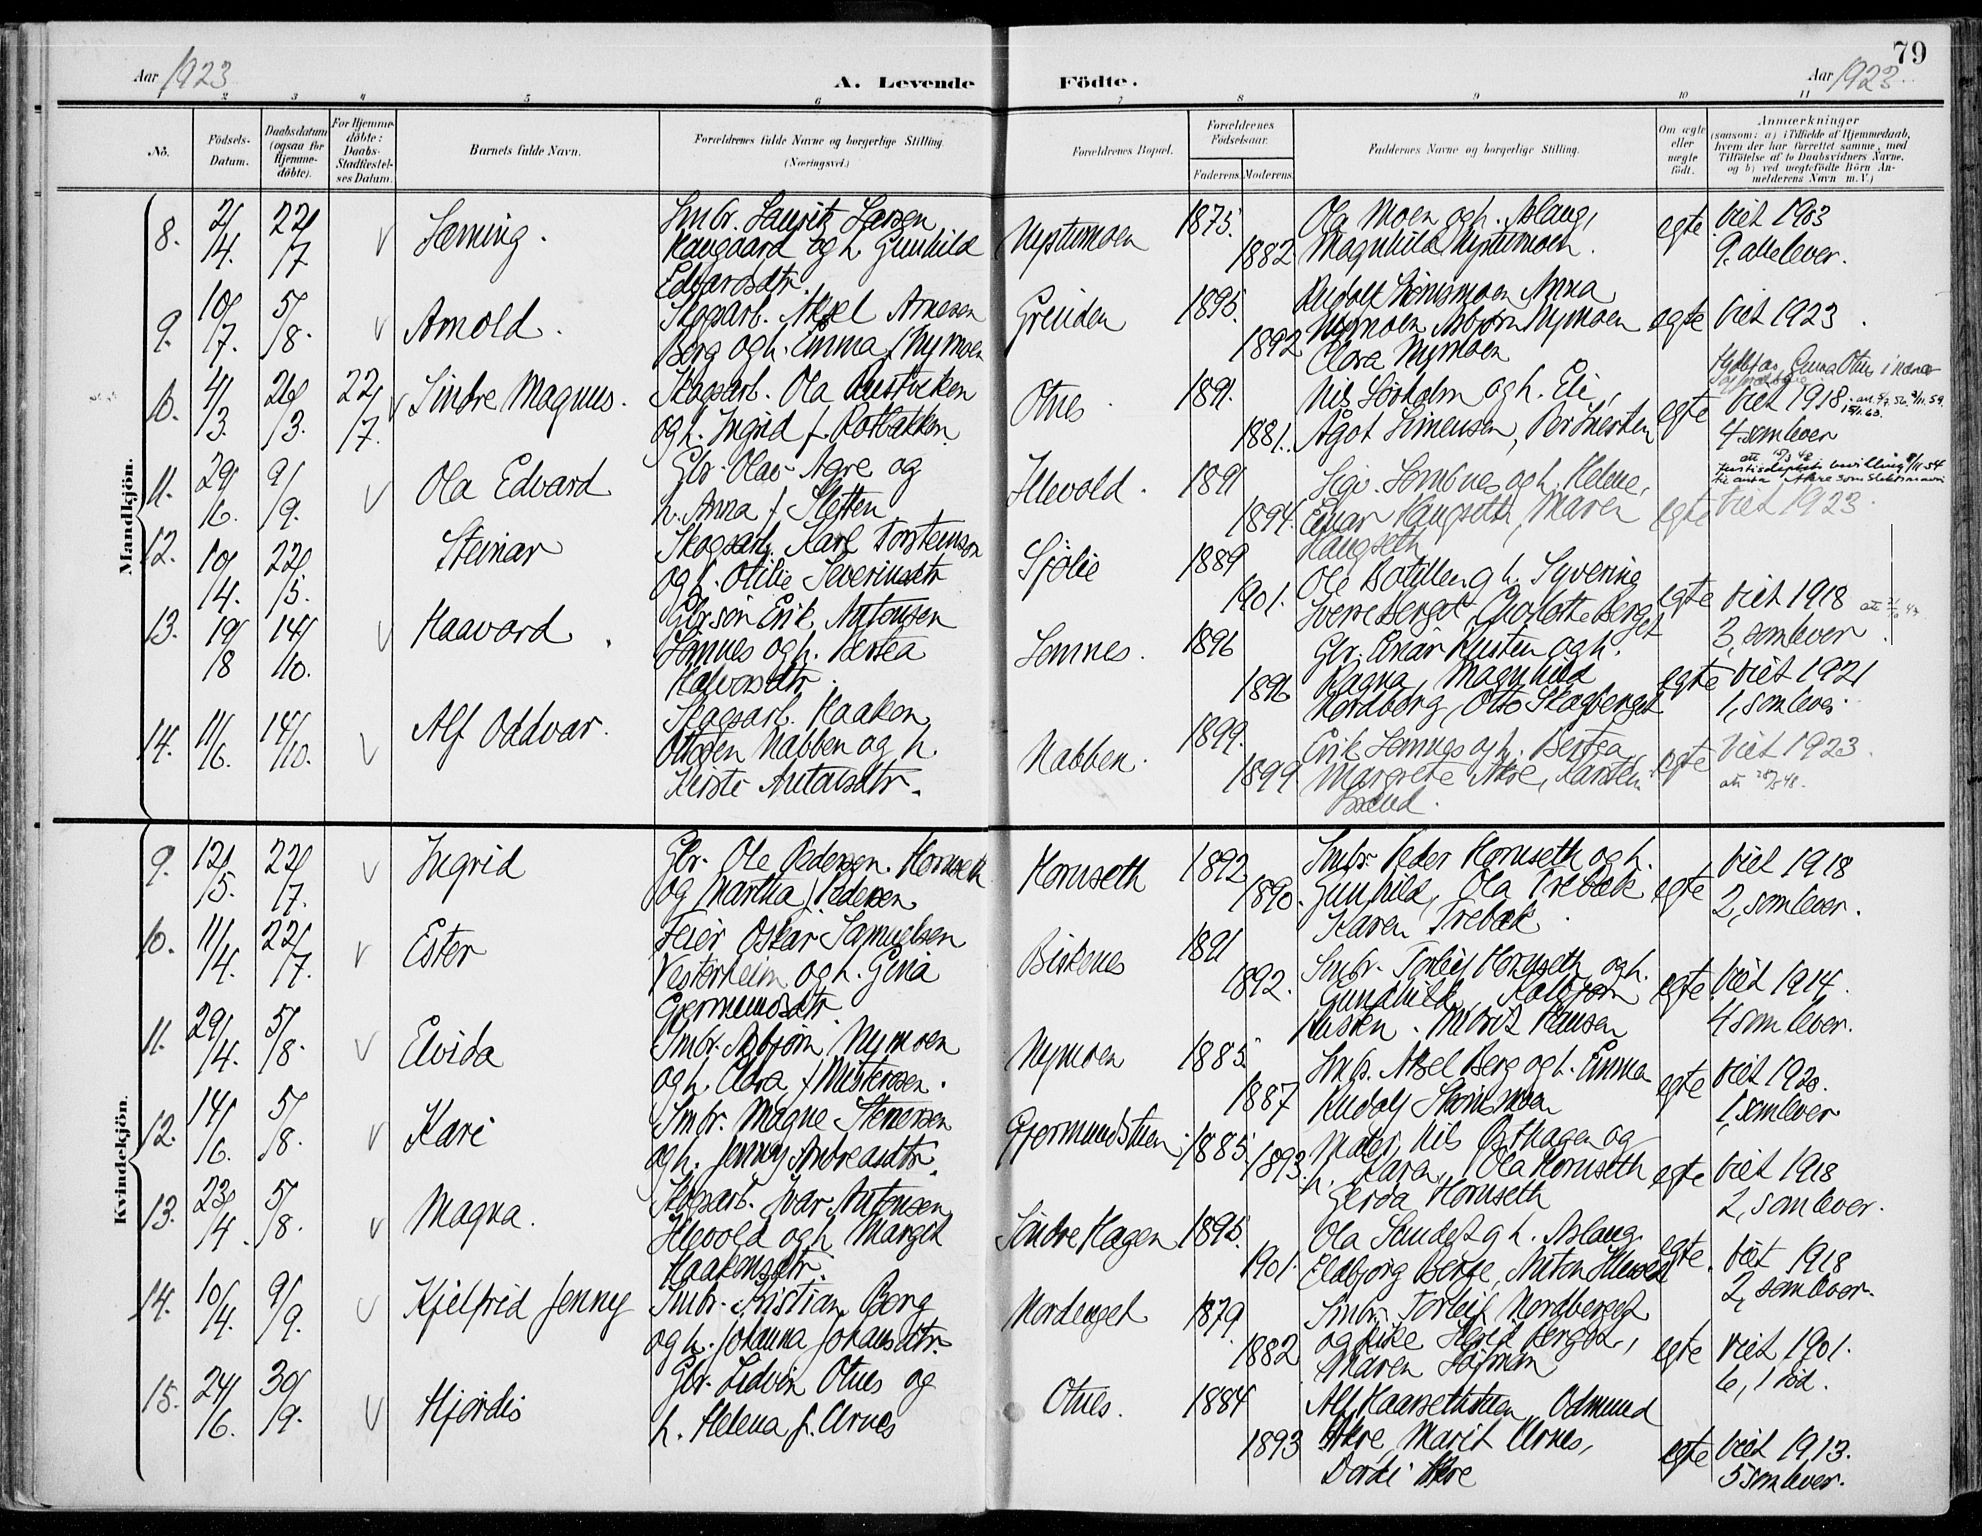 79
Aar 1923
A. Levende Födte.
Aar 1923.
2 3 4 5 6 7 8 9 10 11
No.
Födsels-Datum.
Daabsdatum (ogsaa for Hjemme-döbte).
For Hjemme-döbte: Daabs-Stadfæstel-ses Datum.
Barnets fulde Navn.
Forældrenes fulde Navne og borgerlige Stilling. (Næringsvei.)
Forældrenes Bopæl.
Forældrenes Födselsaar.
Faderens. Moderens.
Faddernes Navne og borgerlige Stilling.
Om ægte eller uægte födt.
Anmærkninger
(saasom: a) i Tilfælde af Hjemmedaab,
hvem der har forrettet samme, med
Tilföielse af to Daabsvidners Navne,
og b) ved uægtefödte Börn An-
melderens Navn m. V.)
Mandkjön.
8. 2/4. 22/7 Sæming. Smbr. Lauritz Larsen
Haugaard og h. Gunhild
Edvardsdtr. Nystumoen 1875. 1882 Ola Moen og h. Aslaug,
Magnhild Nystumoen. egte viet 1903
9. alle lever.
9. 10/7. 5/8. Arnold. Skogsarb. Aksel Arnesen
Berg og h. Emma f. Nymoen Greinden 1895. 1892 Anna
Nymoen Asbjørn Nymoen
Clara Nymoen egte viet 1923.
10. 4/3. 26/3. 22/7. Sindre Magnus. Skogsarb. Ola
og h. Ingrid f. Rotbakken. Otnes 1891. 1881. Nils Sörholm og h. Eli,
Ågot Simensen, Per egte viet 1918.
4 som lever
11. 29/6. 9/9. Ola Edvard Gbr. Olav Agre og
h. Anna f. Sletten Illevold. 1891 1894. Sig. Sömnes og h. Helene,
Einar Haugseth, Maren
Haugseth egte viet 1923.
12. 10/4. 22/5. Steinar Skogsarb. Karl Torstenson
og h. Otilie Severinsdtr Sjölie 1889 1901. Ole Botillen g h. Syverine
Sverre Berget, Charlotte Berget egte viet 1918
3, som lever.
13. 19/8 14/10. Haavard. Gbr. sön Erik Antonsen
Sömnes og h. Bertea
Halvorsdtr. Somnes. 1896 1896 Gbr. Einar og h.
Ragna, Magnhild
Nordberg, Otto Skagberget egte viet 1921
1, som lever.
14. 11/6. 14/10. Alf Oddvar. Skogsarb. Haaken
Ottosen Nabben og h.
Kirsti Antonsdtr. Nabben. 1899. 1899 Erik Somnes og h. Bertea
Margrete Akre, Karsten egte viet 1923.
Kvindekjön.
9. 12/5. 22/7. Ingrid Gbr. Ole Pedersen Hornseth
og Martha f. Pedersen Hornseth 1892 1890. Smbr. Peder Hornseth og h.
Gunhild, Ola Trebæk
Karen Trebæk. egte viet 1918
2, som lever.
10. 11/4. 22/7. Ester Feier Oskar Samuelsen
Vesterheim og h. Gina
Gjermundsdtr. Biskenes 1891 1892. Smbr. Torleif Hornseth og h.
Gunnhild, Kolbjörn
Hansen egte viet 1914.
4 som lever.
11. 29/4. 5/8. Elvida Smbr. Asbjörn Nymoen
og h. Clara f. Mistersen. Nymoen 1885. 1887 Smbr. Aksel Berg og h. Emma
Rudolf egte viet 1920.
1, som lever
12. 14/6. 5/8. Kari Smbr. Magne Stenersen
og h. Jenny Andreasdtr. Gjermundstuen. 1885. 1893. Maler Nils Osthagen og
h. Kara, Ola Hornseth
Gerda Hornseth egte viet 1918
2, som lever.
13. 23/4. 5/8. Magna. Skogsarb. Ivar Antonsen
Illevold og h. Margit
Haakensdtr. Söndre Hagen 1895. 1901. Ola Sundet g h. Aslaug.
Elbjörg Berge, Anton Illevold egte. viet 1918
2, som lever.
14. 10/4. 9/9. Kjelfrid Jenny Smbr. Kristian Borg
og h. Johanna Johansdtr. Nordenget 1879. 1882 Smbr. Torleif Nordberget
og Berget,
Maren egte viet 1901.
6, 1 död.
15. 24/6. 30/9. Hjördis Gbr. Ludvin Otnes og
h. Helena f. Urnes Otnes. 1884 1893 Alf Kaarsethstuen Odmund
Akre, Marit Urnes,
Dordi Akre egte viet 1913.
5 som lever.